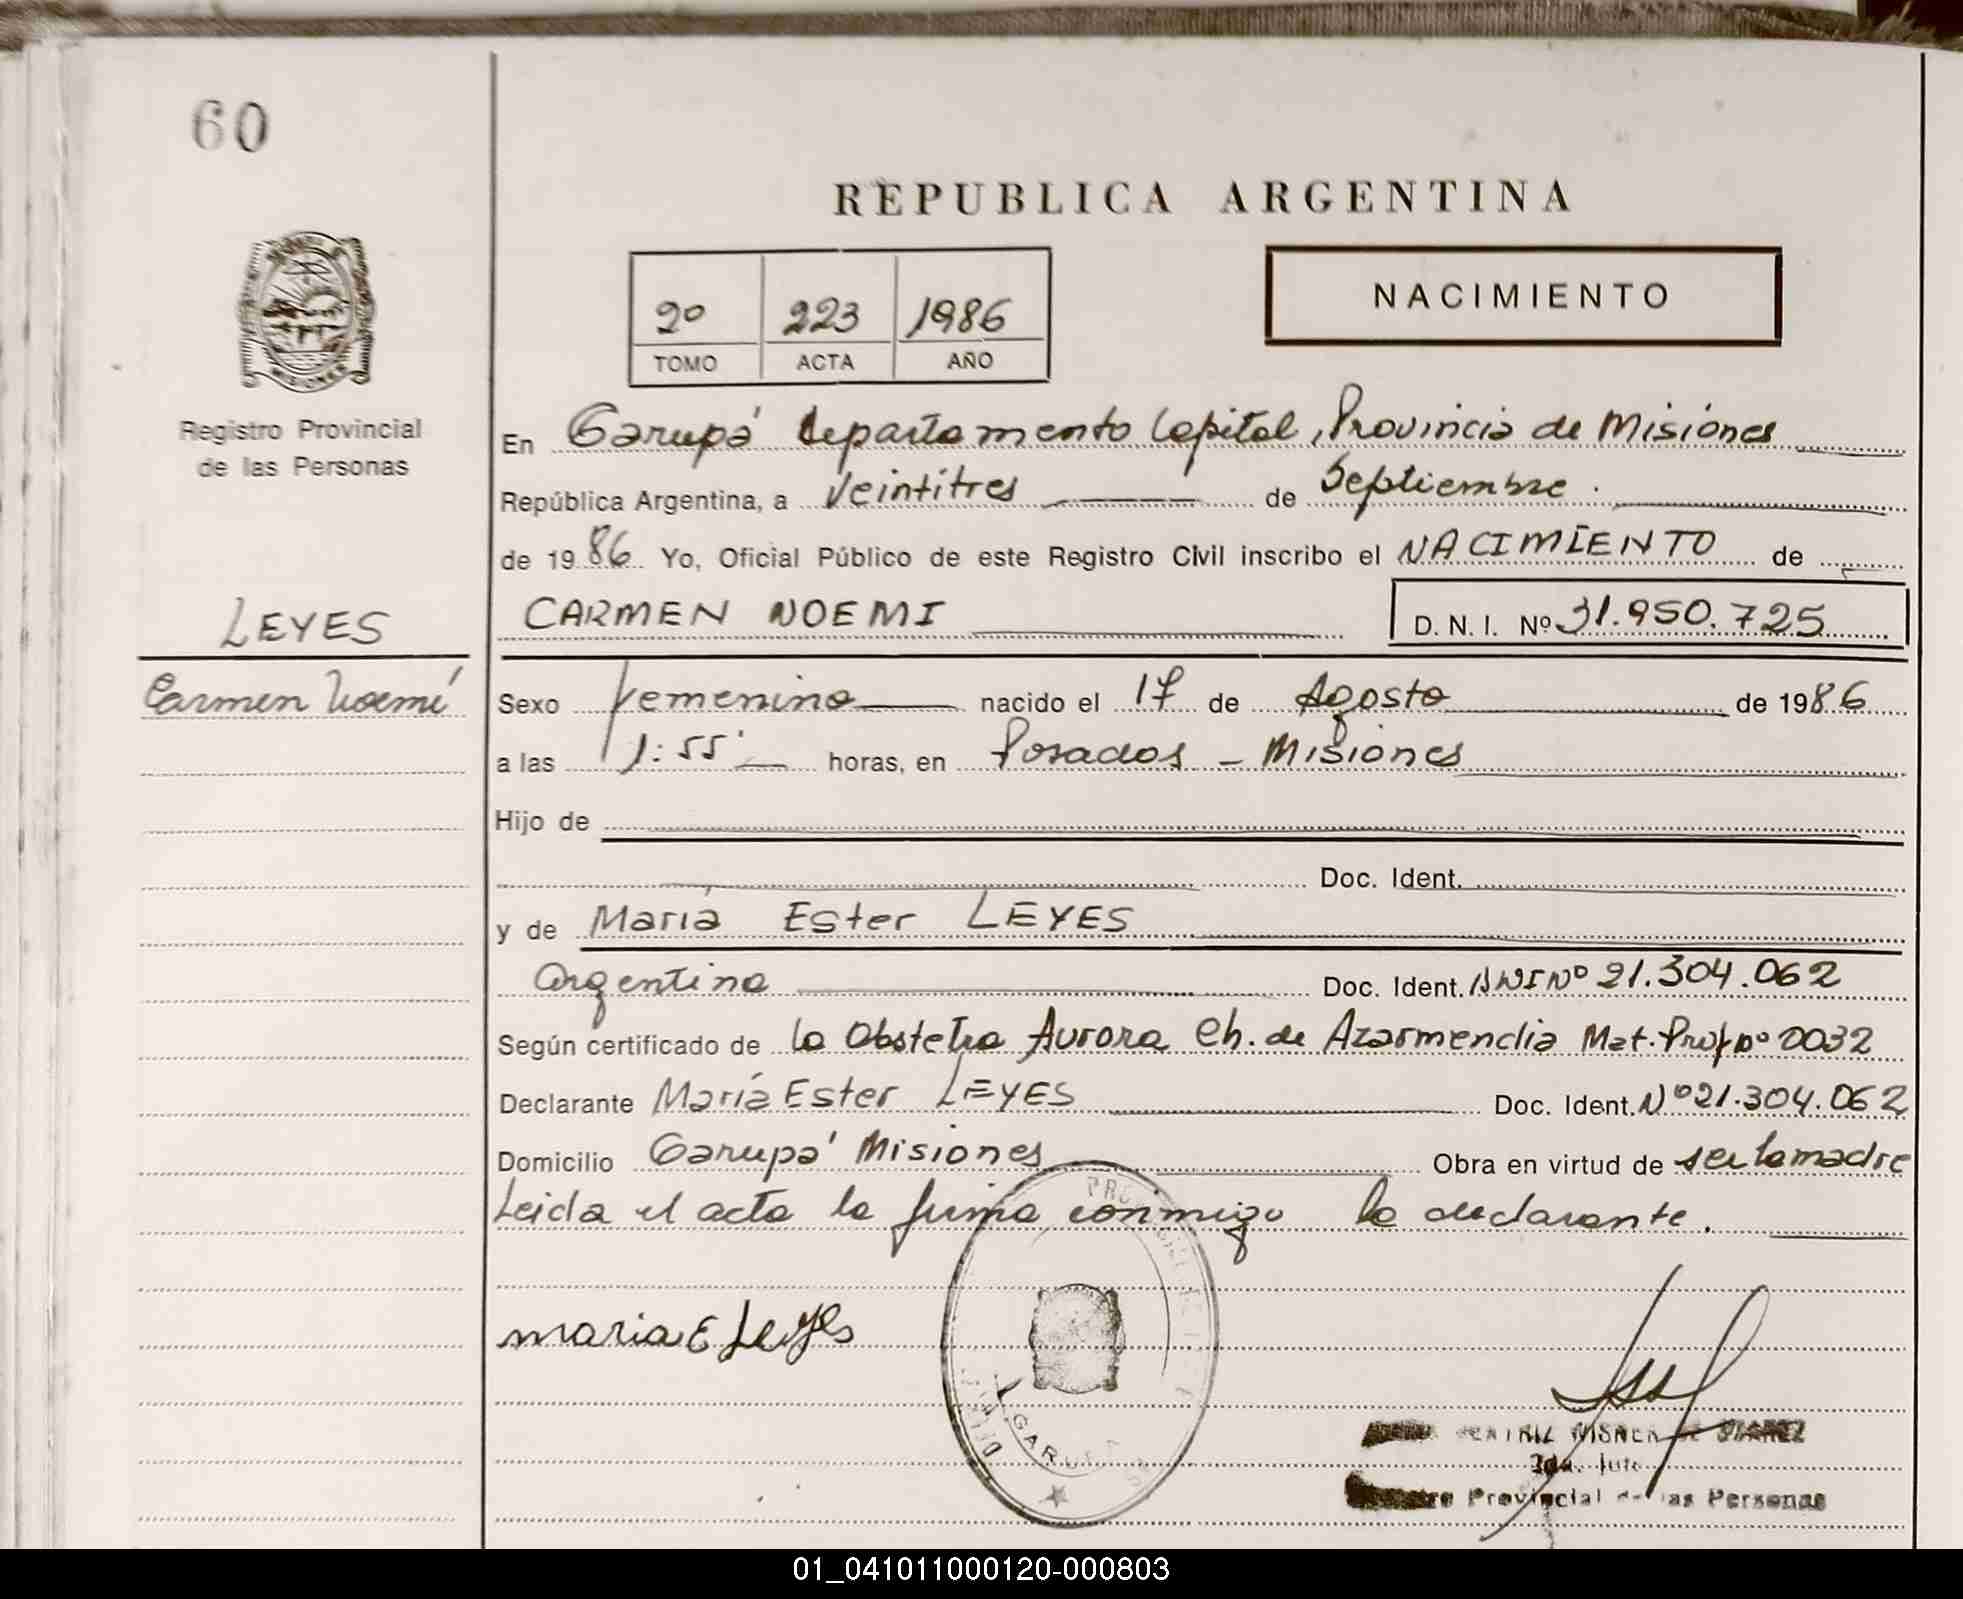 60
REPUBLICA ARGENTINA
MISIONES
Registro Provincial
de las Personas
2º 223 1986
TOMO ACTA AÑO
NACIMIENTO
En Garupá departamento Capital, Provincia de Misiones
República Argentina, a Veintitres de Septiembre
de 1986 Yo, Oficial Público de este Registro Civil inscribo el NACIMIENTO de
LEYES
CARMEN NOEMI D. N. I. Nº 31.950.725
Carmen Noemí
Sexo Femenino nacido el 17 de Agosto de 1986
a las 1:55' horas, en Posadas - Misiones
Hijo de
Doc. Ident.
y de María Ester LEYES
Argentina Doc. Ident. DNI Nº 21.304.062
Según certificado de la Obstetra Aurora Ch. de Azarmendia Mat. Prof nº 0032
Declarante María Ester LEYES Doc. Ident. Nº 21.304.062
Domicilio Garupá Misiones Obra en virtud de ser la madre
Leida el acta la firma conmigo la declarante.
maria E Leyes
GARUPA
BEATRIZ DE SUAREZ
2da.
Provincial de las Personas
01_041011000120-000803